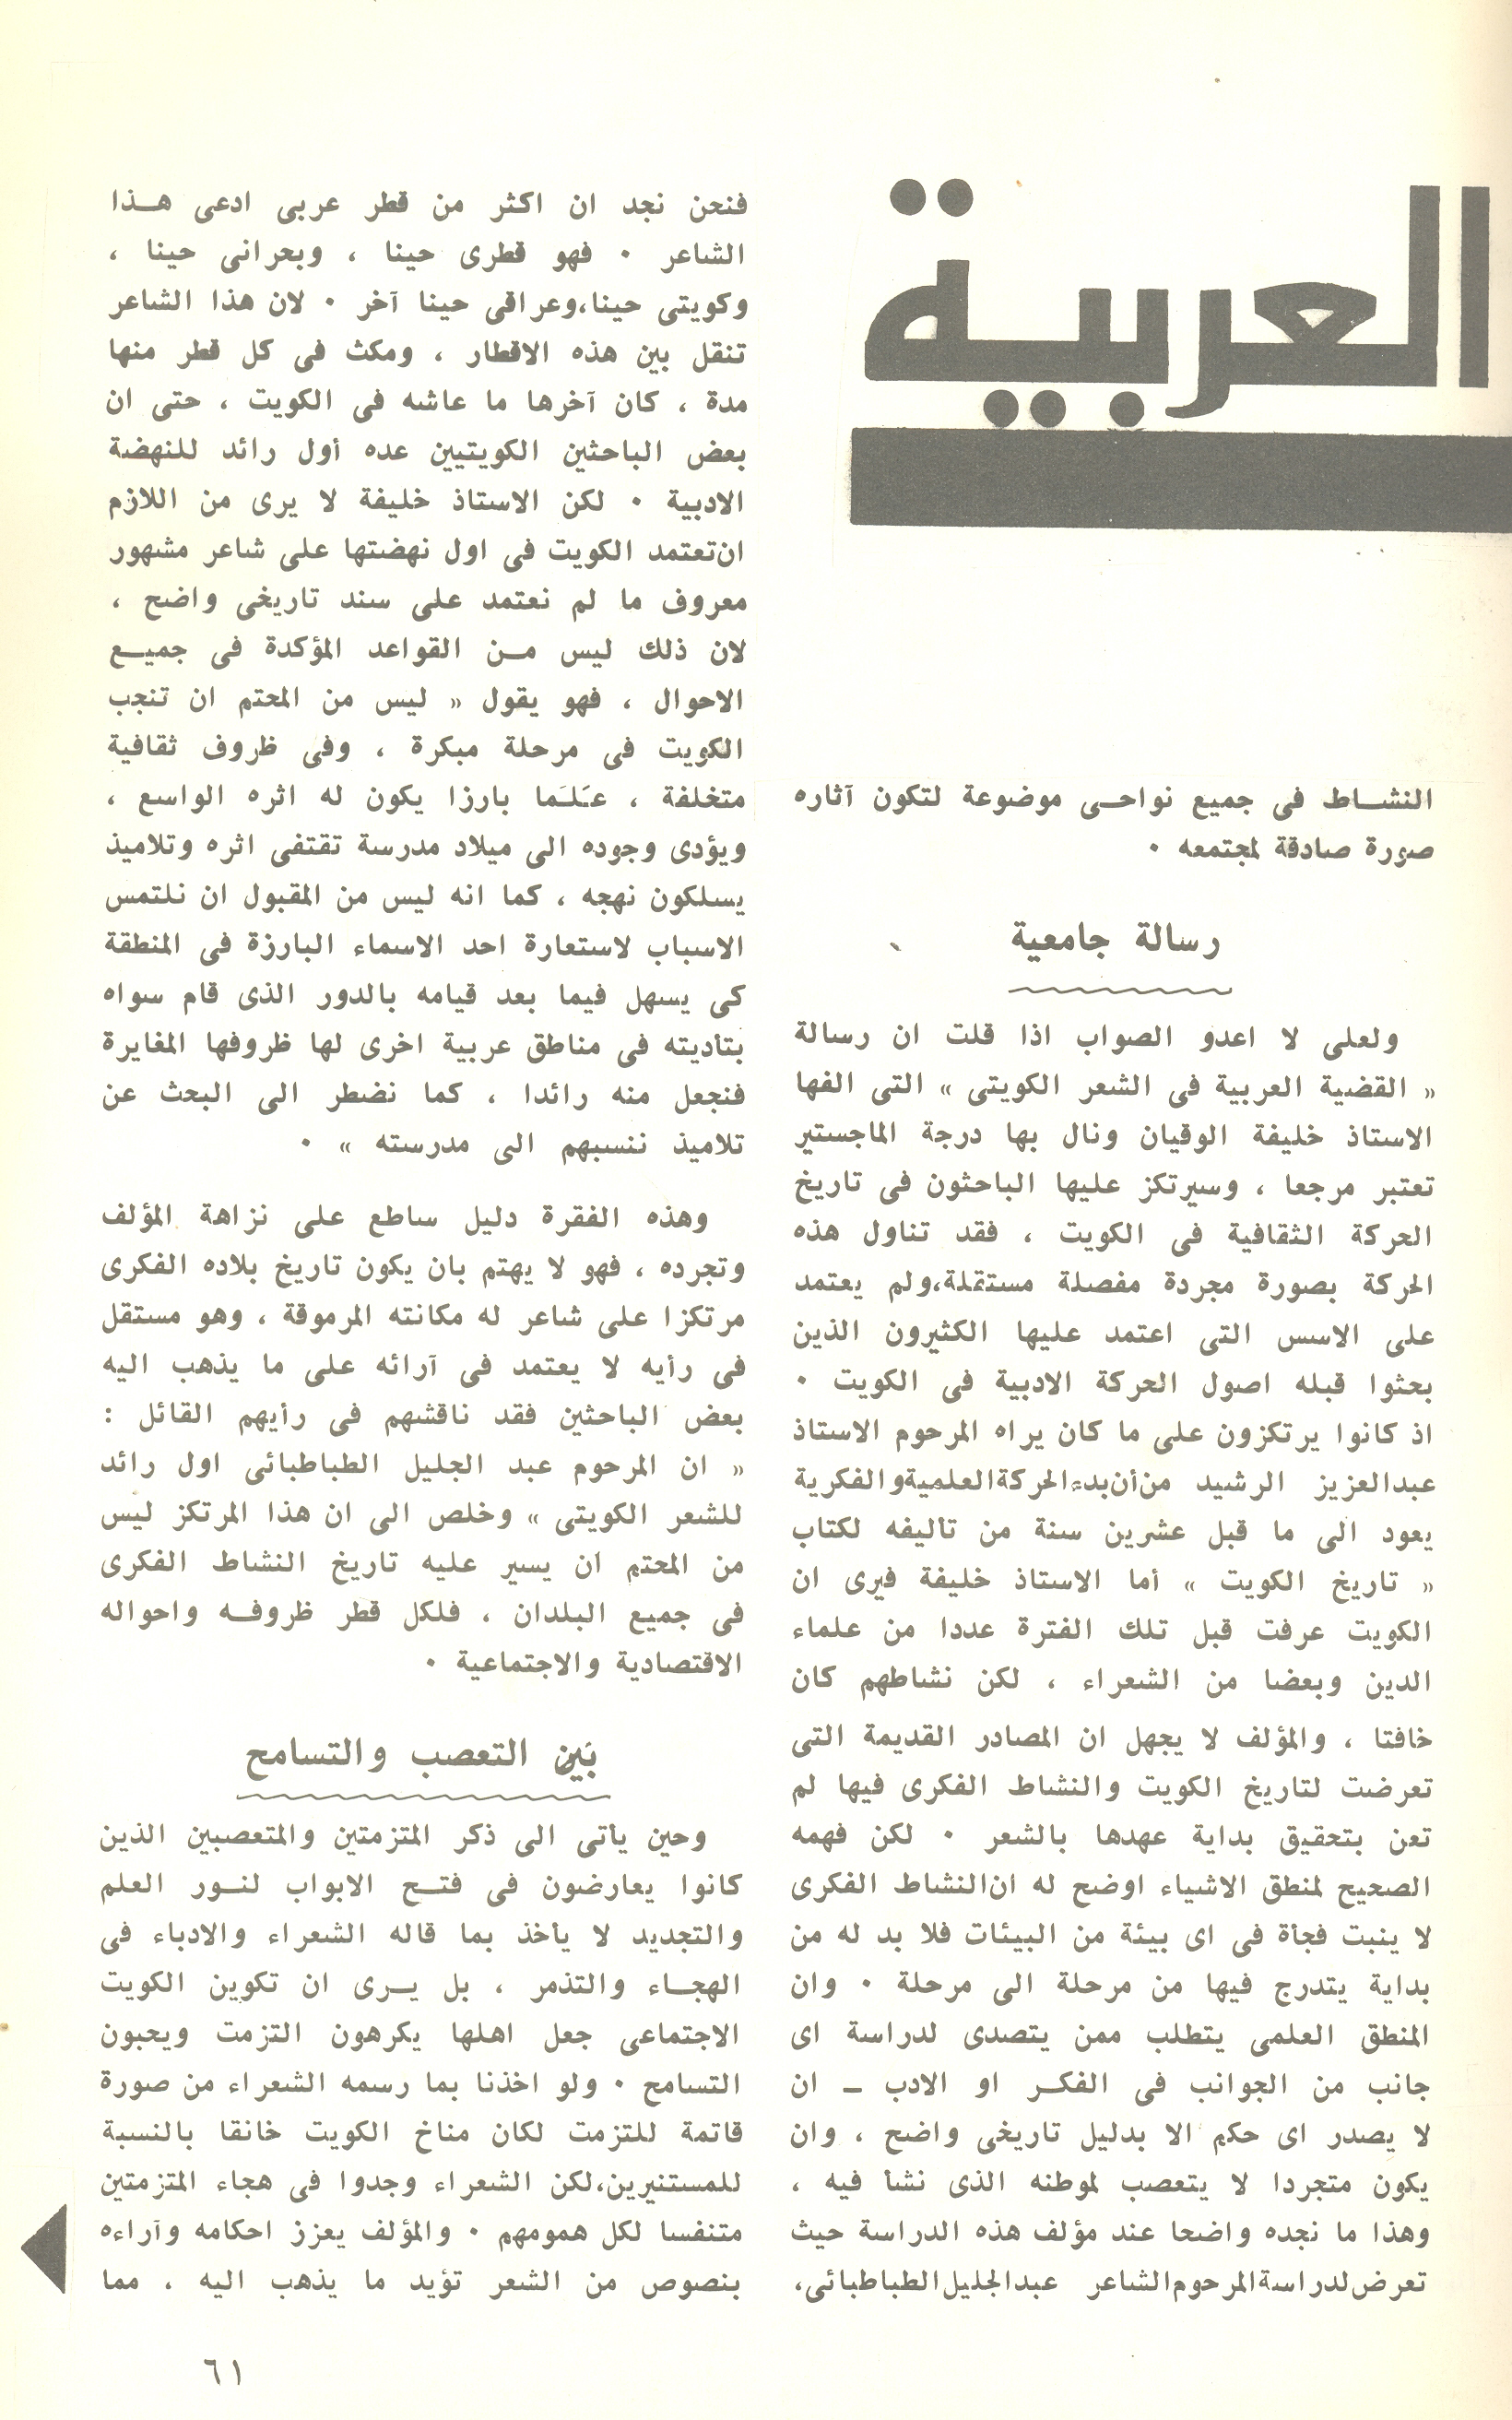 العربية
النشاط فى جميع نواحى موضوعة لتكون آثاره
صورة صادقة لمجتمعه ٠
رسالة جامعية
ولعلى لا اعدو الصواب اذا قلت ان رسالة
« القضية العربية فى الشعر الكويتى » التى الفها
الاستاذ خليفة الوقيان ونال بها درجة الماجستير
تعتبر مرجعا ، وسيرتكز عليها الباحثون فى تاريخ
الحركة الثقافية فى الكويت ، فقد تناول هذه
الحركة بصورة مجردة مفصلة مستقلة،ولم يعتمد
على الاسس التى اعتمد عليها الكثيرون الذين
بحثوا قبله اصول الحركة الادبية فى الكويت ٠
اذ كانوا يرتكزون على ما كان يراه المرحوم الاستاذ
عبدالعزيز الرشيد من أن بدء الحركة العلمية والفكرية
يعود الى ما قبل عشرين سنة من تأليفه لكتاب
« تاريخ الكويت » أما الاستاذ خليفة فيرى ان
الكويت عرفت قبل تلك الفترة عددا من علماء
الدين وبعضا من الشعراء ، لكن نشاطهم كان
خافتا ، والمؤلف لا يجهل ان المصادر القديمة التى
تعرضت لتاريخ الكويت والنشاط الفكرى فيها لم
تعن بتحقيق بداية عهدها بالشعر ٠ لكن فهمه
الصحيح لمنطق الاشياء اوضح له ان النشاط الفكرى
لا ينبت فجأة فى اى بيئة من البيئات فلا بد له من
بداية يتدرج فيها من مرحلة الى مرحلة ٠ وان
المنطق العلمى يتطلب ممن يتصدى لدراسة اى
جانب من الجوانب فى الفكر او الادب ـ ان
لا يصدر اى حكم الا بدليل تاريخى واضح ، وان
يكون متجردا لا يتعصب لموطنه الذى نشأ فيه ،
وهذا ما نجده واضحا عند مؤلف هذه الدراسة حيث
تعرض لدراسة المرحوم الشاعر عبدالجليل الطباطبائى،
فنحن نجد ان اكثر من قطر عربى ادعى هذا
الشاعر ٠ فهو قطرى حينا ، وبحرانى حينا ،
وكويتى حينا،وعراقى حينا آخر ٠ لان هذا الشاعر
تنقل بين هذه الاقطار ، ومكث فى كل قطر منها
مدة ، كان آخرها ما عاشه فى الكويت ، حتى ان
بعض الباحثين الكويتيين عده أول رائد للنهضة
الادبية ٠ لكن الاستاذ خليفة لا يرى من اللازم
ان تعتمد الكويت فى اول نهضتها على شاعر مشهور
معروف ما لم نعتمد على سند تاريخى واضح ،
لان ذلك ليس من القواعد المؤكدة فى جميع
الاحوال ، فهو يقول « ليس من المحتم ان تنجب
الكويت فى مرحلة مبكرة ، وفى ظروف ثقافية
متخلفة ، عَلَما بارزا يكون له اثره الواسع ،
ويؤدى وجوده الى ميلاد مدرسة تقتفى اثره وتلاميذ
يسلكون نهجه ، كما انه ليس من المقبول ان نلتمس
الاسباب لاستعارة احد الاسماء البارزة فى المنطقة
كى يسهل فيما بعد قيامه بالدور الذى قام سواه
بتأديته فى مناطق عربية اخرى لها ظروفها المغايرة
فنجعل منه رائدا ، كما نضطر الى البحث عن
تلاميذ ننسبهم الى مدرسته » ٠
وهذه الفقرة دليل ساطع على نزاهة المؤلف
وتجرده ، فهو لا يهتم بان يكون تاريخ بلاده الفكرى
مرتكزا على شاعر له مكانته المرموقة ، وهو مستقل
فى رأيه لا يعتمد فى آرائه على ما يذهب اليه
بعض الباحثين فقد ناقشهم فى رأيهم القائل :
« ان المرحوم عبد الجليل الطباطبائى اول رائد
للشعر الكويتى » وخلص الى ان هذا المرتكز ليس
من المحتم ان يسير عليه تاريخ النشاط الفكرى
فى جميع البلدان ، فلكل قطر ظروفه واحواله
الاقتصادية والاجتماعية ٠
بين التعصب والتسامح
وحين يأتى الى ذكر المتزمتين والمتعصبين الذين
كانوا يعارضون فى فتح الابواب لنور العلم
والتجديد لا يأخذ بما قاله الشعراء والادباء فى
الهجاء والتذمر ، بل يرى ان تكوين الكويت
الاجتماعى جعل اهلها يكرهون التزمت ويحبون
التسامح ٠ ولو اخذنا بما رسمه الشعراء من صورة
قاتمة للتزمت لكان مناخ الكويت خانقا بالنسبة
للمستنيرين،لكن الشعراء وجدوا فى هجاء المتزمتين
متنفسا لكل همومهم ٠ والمؤلف يعزز احكامه وآراءه
بنصوص من الشعر تؤيد ما يذهب اليه ، مما
٦١